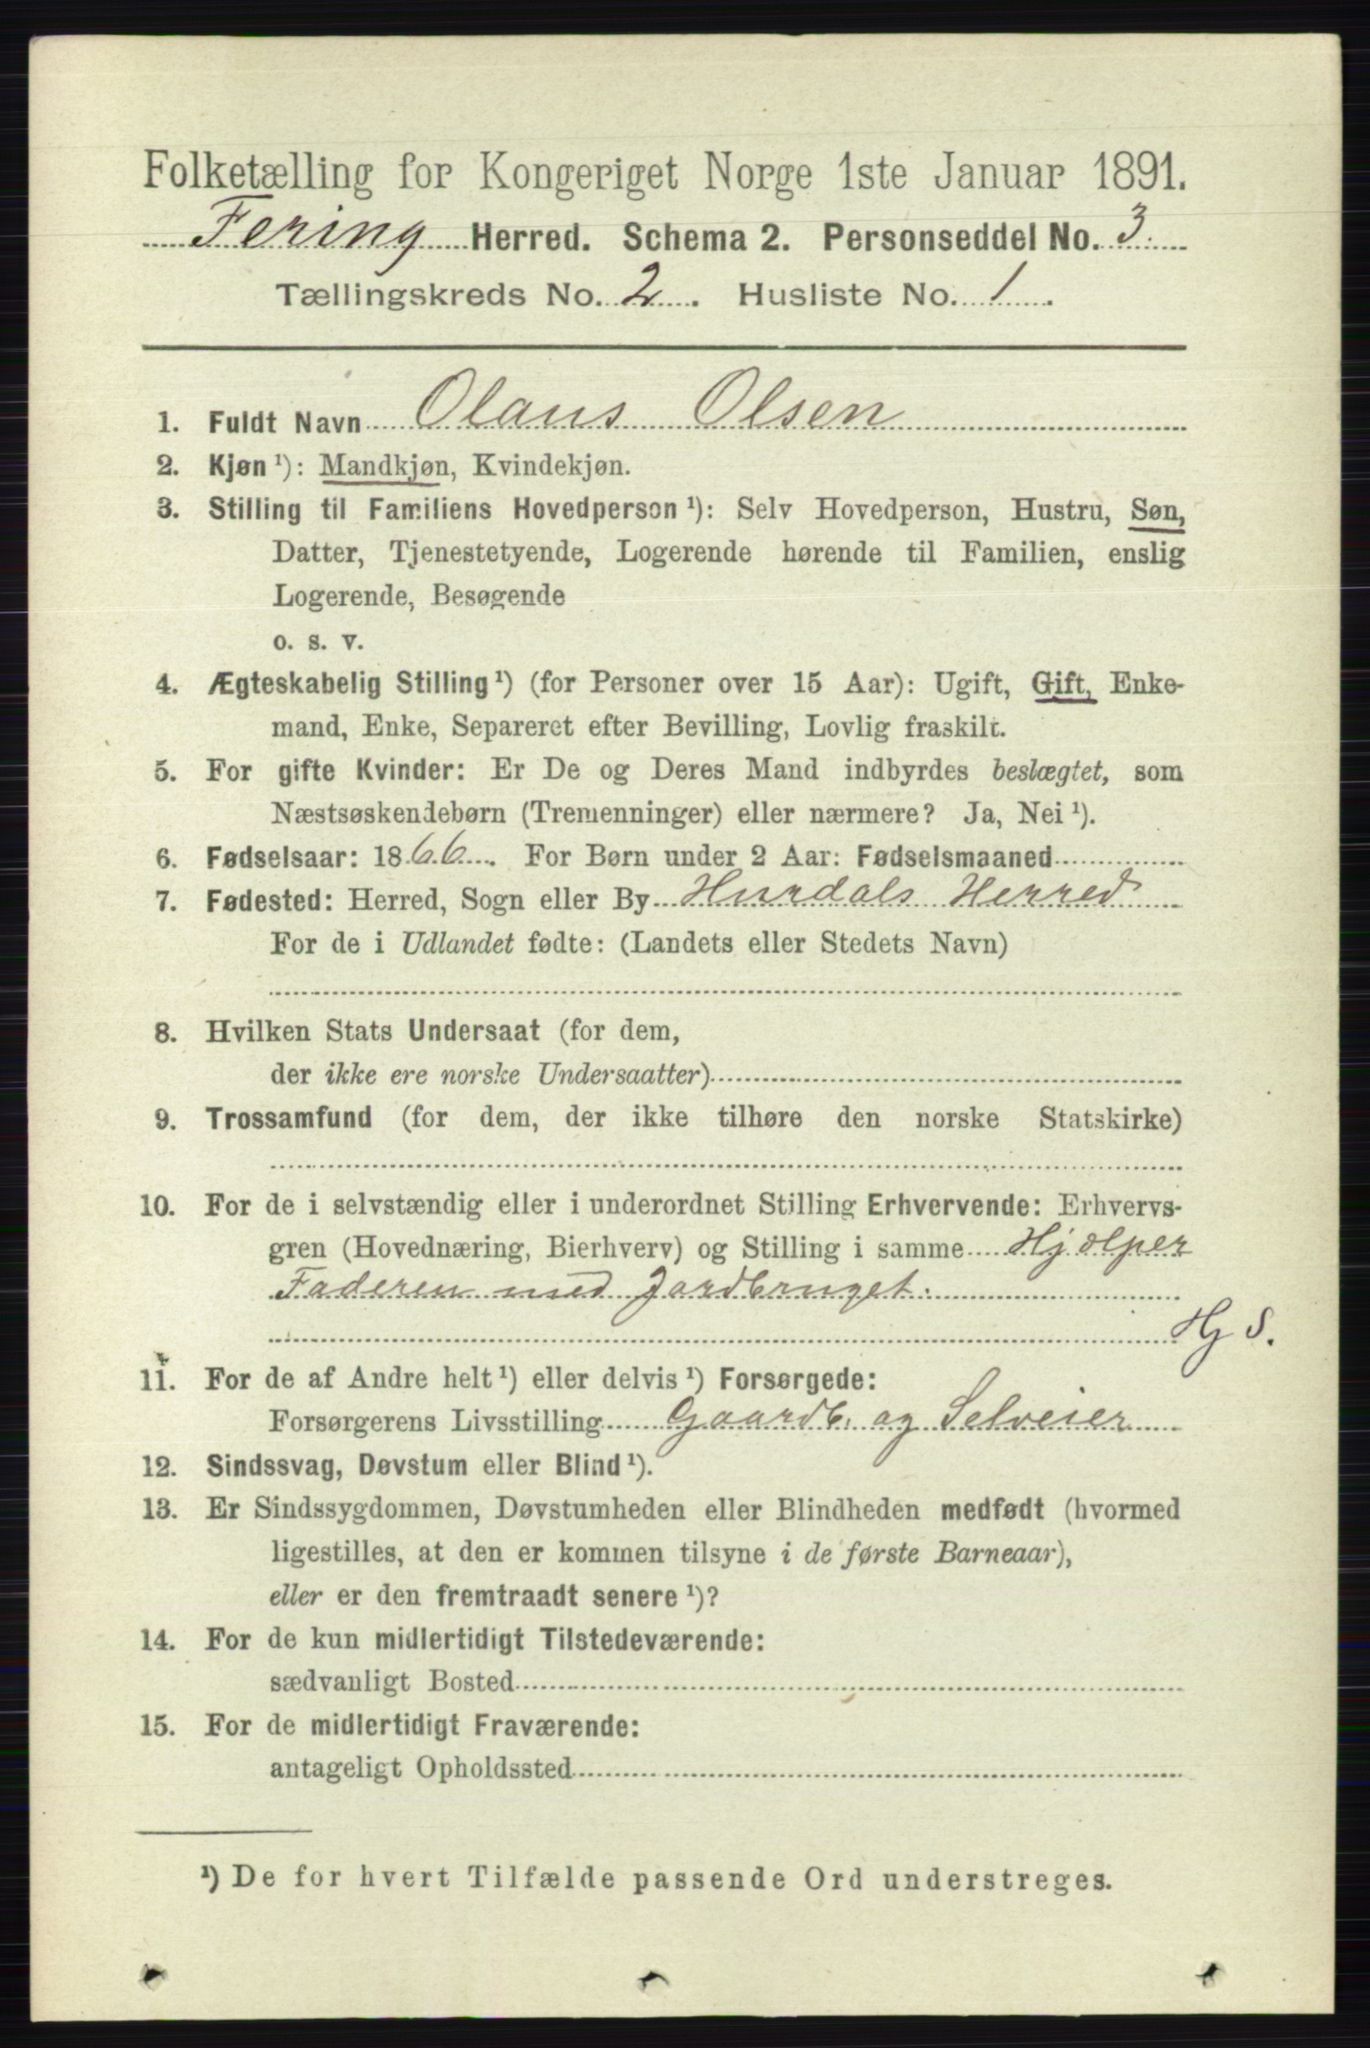 Folketælling for Kongeriget Norge 1ste Januar 1891.
Fering Herred. Schema 2. Personseddel No. 3.
Tællingskreds No. 2. Husliste No. 1.
1. Fuldt Navn Olaus Olsen
2. Kjøn ¹): Mandkjøn, Kvindekjøn.
3. Stilling til Familiens Hovedperson ¹): Selv Hovedperson, Hustru, Søn,
Datter, Tjenestetyende, Logerende hørende til Familien, enslig
Logerende, Besøgende
o. s. v.
4. Ægteskabelig Stilling ¹) (for Personer over 15 Aar): Ugift, Gift, Enke-
mand, Enke, Separeret efter Bevilling, Lovlig fraskilt.
5. For gifte Kvinder: Er De og Deres Mand indbyrdes beslægtet, som
Næstsøskendebørn (Tremenninger) eller nærmere? Ja, Nei ¹).
6. Fødselsaar: 1866. For Børn under 2 Aar: Fødselsmaaned
7. Fødested: Herred, Sogn eller By Hurdals Herred
For de i Udlandet fødte: (Landets eller Stedets Navn)
8. Hvilken Stats Undersaat (for dem,
der ikke ere norske Undersaatter)
9. Trossamfund (for dem, der ikke tilhøre den norske Statskirke)
10. For de i selvstændig eller i underordnet Stilling Erhvervende: Erhvervs-
gren (Hovednæring, Bierhverv) og Stilling i samme Hjælper
Faderen med Jordbruget.
Hj S.
11. For de af Andre helt ¹) eller delvis ¹) Forsørgede:
Forsørgerens Livsstilling Gaardb. og Selveier
12. Sindssvag, Døvstum eller Blind ¹).
13. Er Sindssygdommen, Døvstumheden eller Blindheden medfødt (hvormed
ligestilles, at den er kommen tilsyne i de første Barneaar),
eller er den fremtraadt senere ¹)?
14. For de kun midlertidigt Tilstedeværende:
sædvanligt Bosted
15. For de midlertidigt Fraværende:
antageligt Opholdssted
¹) De for hvert Tilfælde passende Ord understreges.